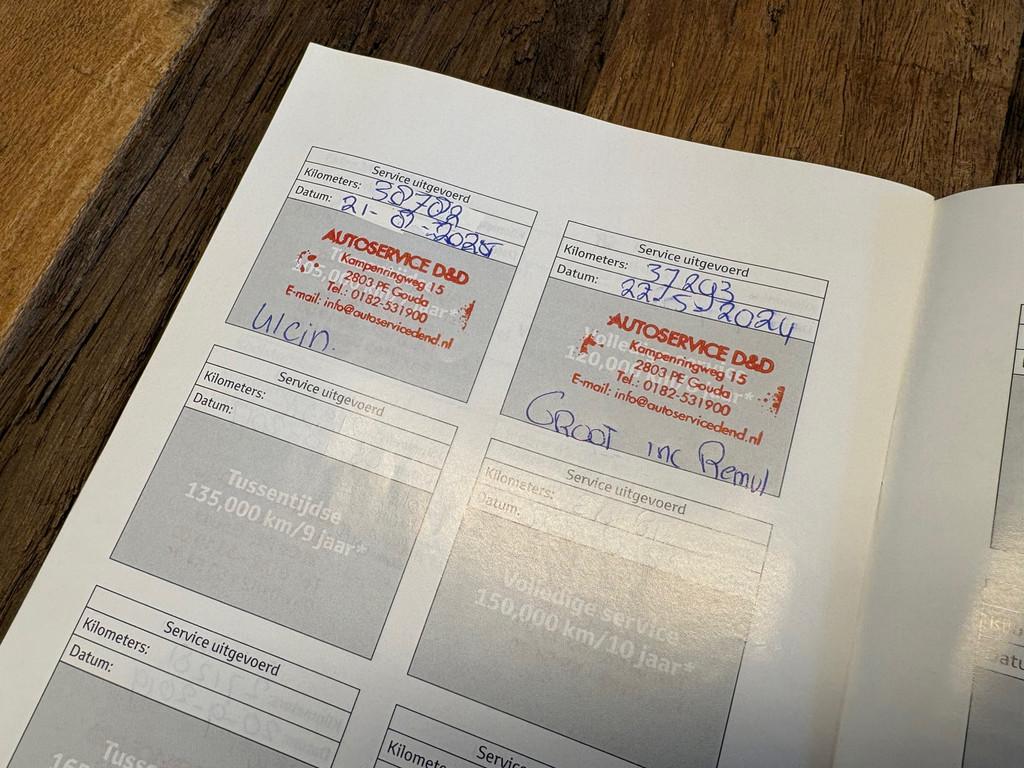 Service uitgevoerd
Kilometers: 38702
Datum: 21-
AUTOSERVICE D&D
Kampenringweg 15
2803 PE Gouda
Tel.: 0182-531900
E-mail: info@autoservicedend.nl
Service uitgevoerd
Kilometers: 37293
Datum: 22-5-2024
AUTOSERVICE D&D
Kampenringweg 15
2803 PE Gouda
Tel.: 0182-531900
E-mail: info@autoservicedend.nl
GROOT inc Remvl
Service uitgevoerd
Kilometers:
Datum:
Tussentijdse
135,000 km/9 jaar*
Service uitgevoerd
Kilometers:
Datum:
Volladige service
150,000 km/10 jaar*
Service uitgevoerd
Kilometers:
Datum:
Kilometers: